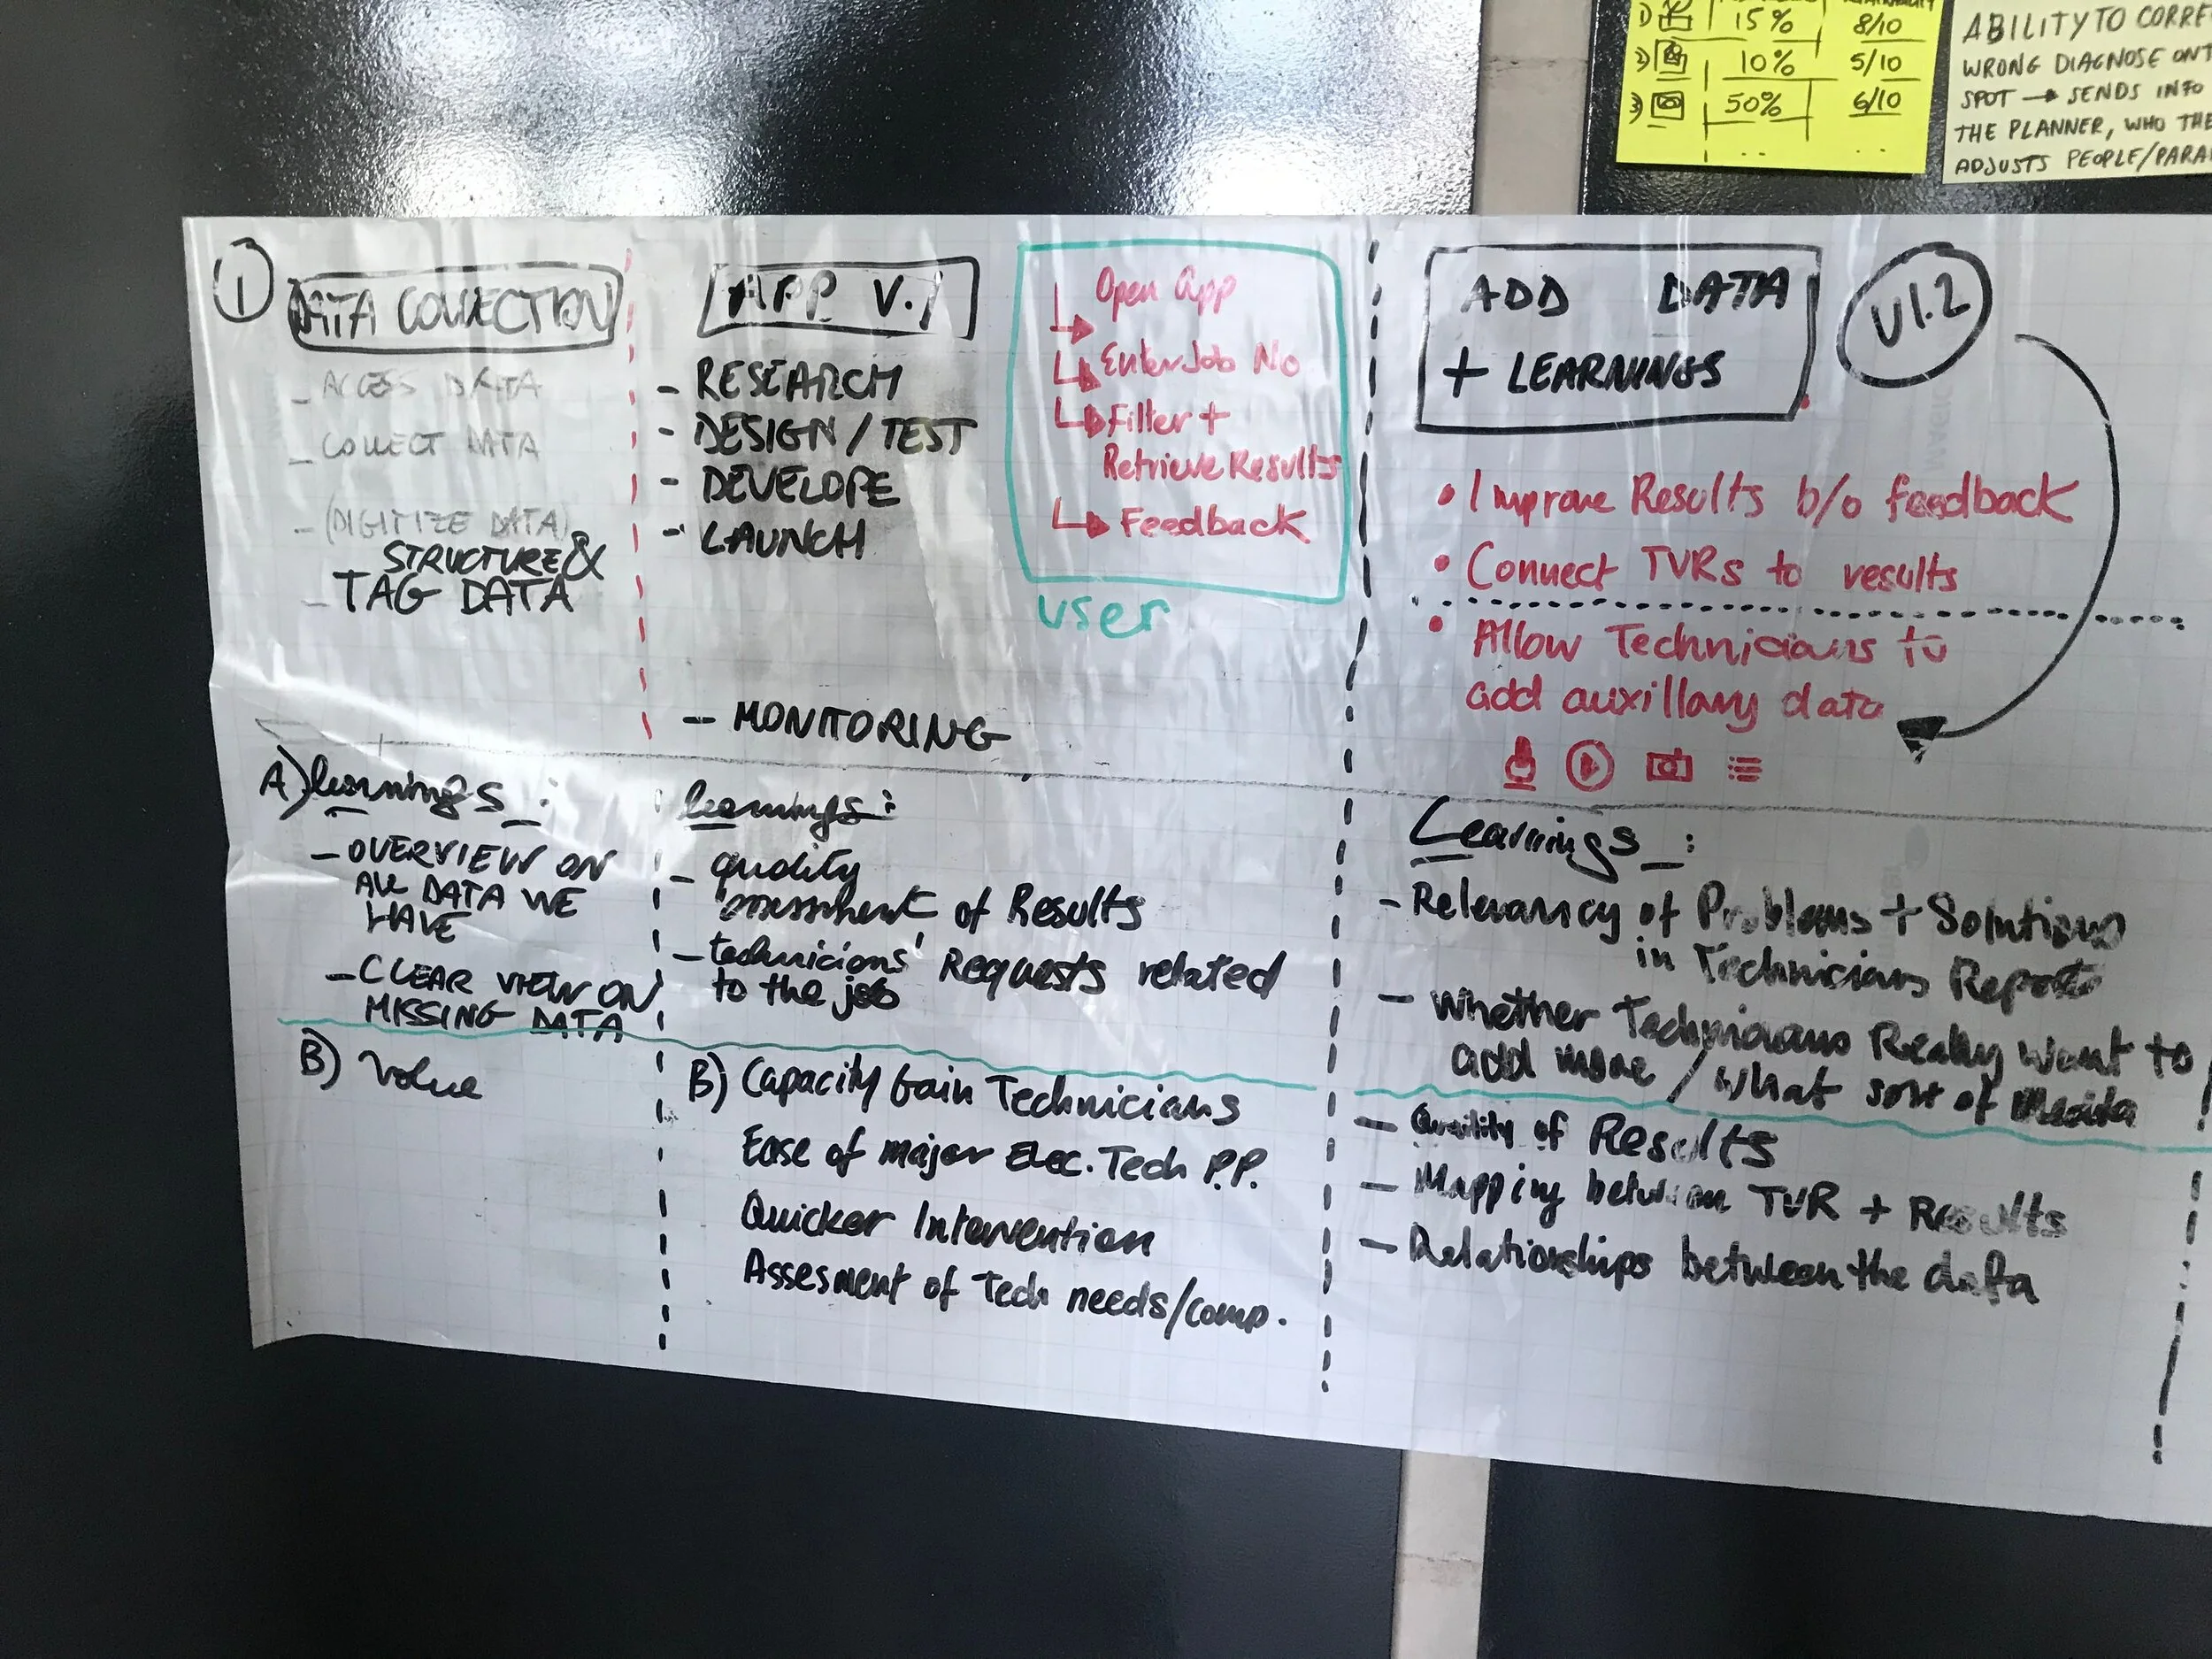 1) 15% 8/10
2) 10% 5/10
3) 50% 6/10
.. ..
ABILITY TO CORRE
WRONG DIAGNOSE ONT
SPOT → SENDS INFO
THE PLANNER, WHO THE
ADJUSTS PEOPLE/PARA
1
DATA COLLECTION
- ACCESS DATA
- COLLECT DATA
- (DIGITIZE DATA)
STRUCTURE &
- TAG DATA
APP V.1
- RESEARCH
- DESIGN / TEST
- DEVELOPE
- LAUNCH
- MONITORING
Open App
Enter Job No
Filter +
Retrieve Results
Feedback
user
ADD DATA
+ LEARNINGS
V1.2
• Improve Results b/o feedback
• Connect TVRs to results
• Allow Technicians to
add auxillary data
A) learnings :
- OVERVIEW ON
ALL DATA WE
HAVE
- CLEAR VIEW ON
MISSING DATA
learnings :
- quality
assessment of Results
- technicians' Requests related
to the job
Learnings :
- Relevancy of Problems + Solutions
in Technicians Reports
- Whether Technicians Really want to
add more / what sort of Media
B) Value
B) Capacity Gain Technicians
Ease of major Elec. Tech P.P.
Quicker Intervention
Assesment of Tech needs/comp.
- Quality of Results
- Mapping between TVR + Results
- Relationships between the data